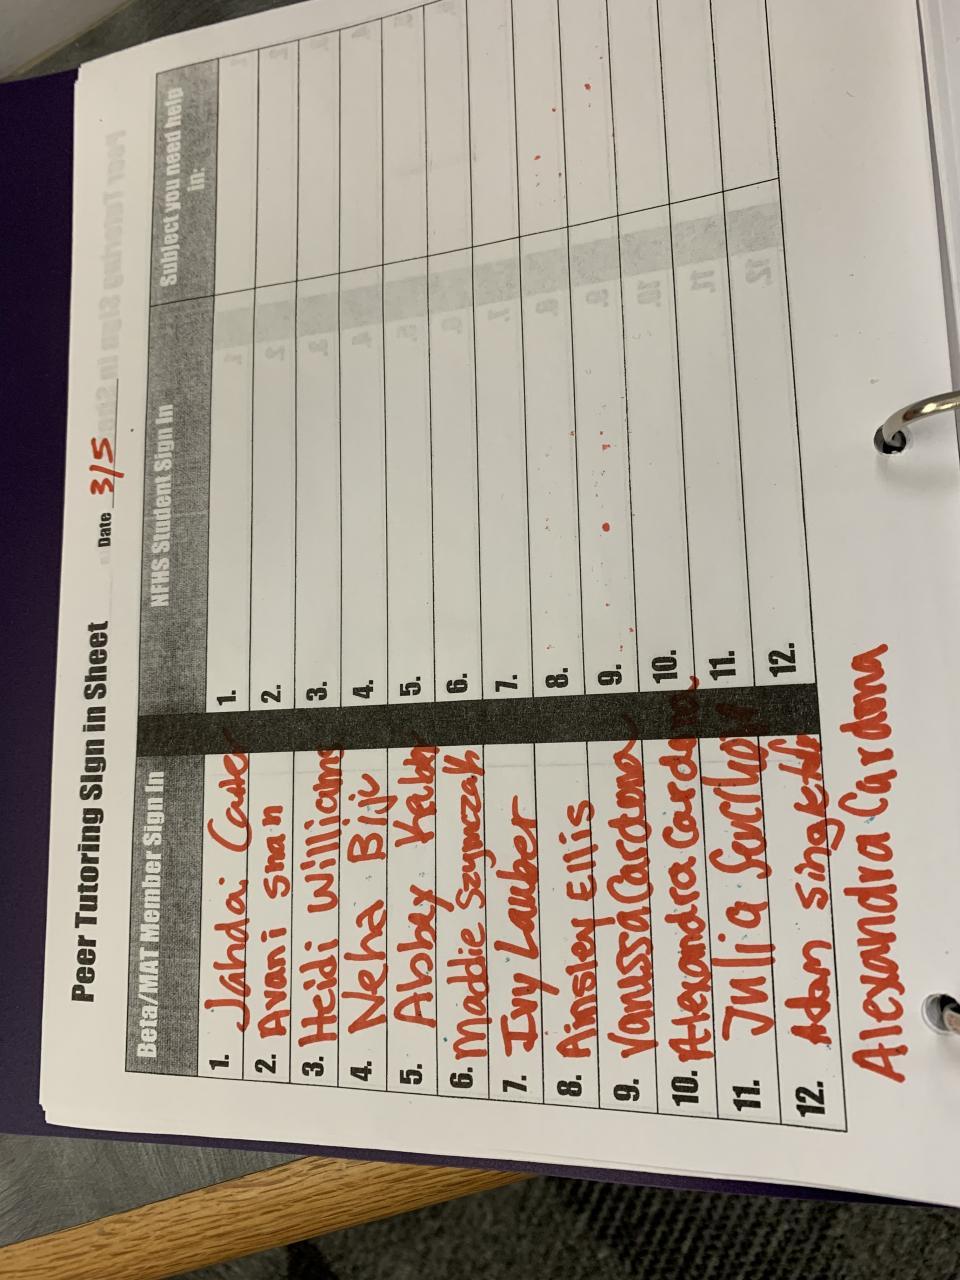 Peer Tutoring Sign in Sheet Date 3/5
Beta/MAT Member Sign In NFHS Student Sign In Subject you need help in:
1. Jahdai Carter 1.
2. Avani Shah 2.
3. Heidi Williams 3.
4. Neha Biju 4.
5. Abbey 5.
6. Maddie Szymczak 6.
7. Ivy Lauber 7.
8. Ainsley Ellis 8.
9. Vanussa Cardona 9.
10. Alexandra Cardona 10.
11. Julia 11.
12. Adan 12.
Alexandra Cardona